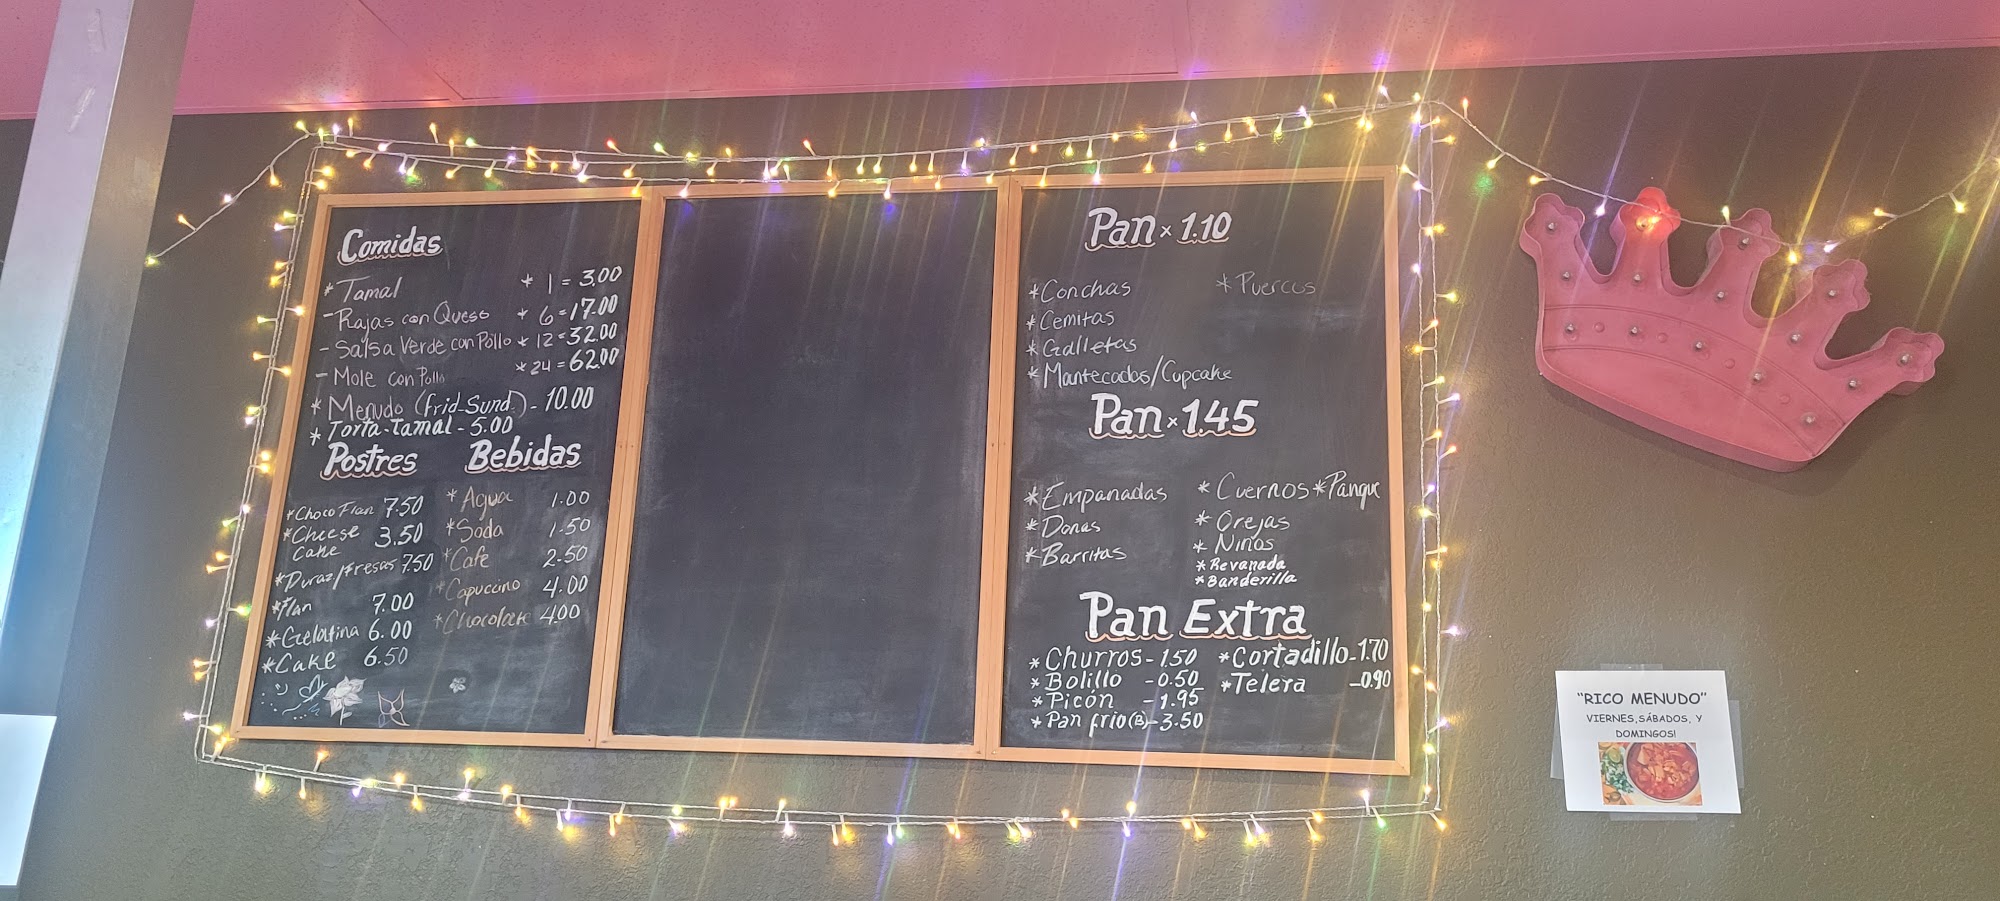 Comidas
* Tamal * 1 = 3.00
- Rajas con Queso * 6 = 17.00
- Salsa Verde con Pollo * 12 = 32.00
- Mole con Pollo * 24 = 62.00
* Menudo (Frid-Sund.) - 10.00
* Torta-Tamal - 5.00
Postres
* Choco Flan 7.50
* Cheese 3.50
Cake
* Duraz./Fresas 7.50
* Flan 7.00
* Gelatina 6.00
* Cake 6.50
Bebidas
* Agua 1.00
* Soda 1.50
* Cafe 2.50
* Capuccino 4.00
* Chocolate 4.00
Pan x 1.10
* Conchas * Puercos
* Cemitas
* Galletas
* Mantecados/Cupcake
Pan x 1.45
* Empanadas * Cuernos * Panque
* Donas * Orejas
* Barritas * Niños
* Revanada
* Banderilla
Pan Extra
* Churros - 1.50 * Cortadillo - 1.70
* Bolillo - 0.50 * Telera - 0.90
* Picón - 1.95
* Pan frio (B) - 3.50
"RICO MENUDO"
VIERNES, SÁBADOS, Y
DOMINGOS!